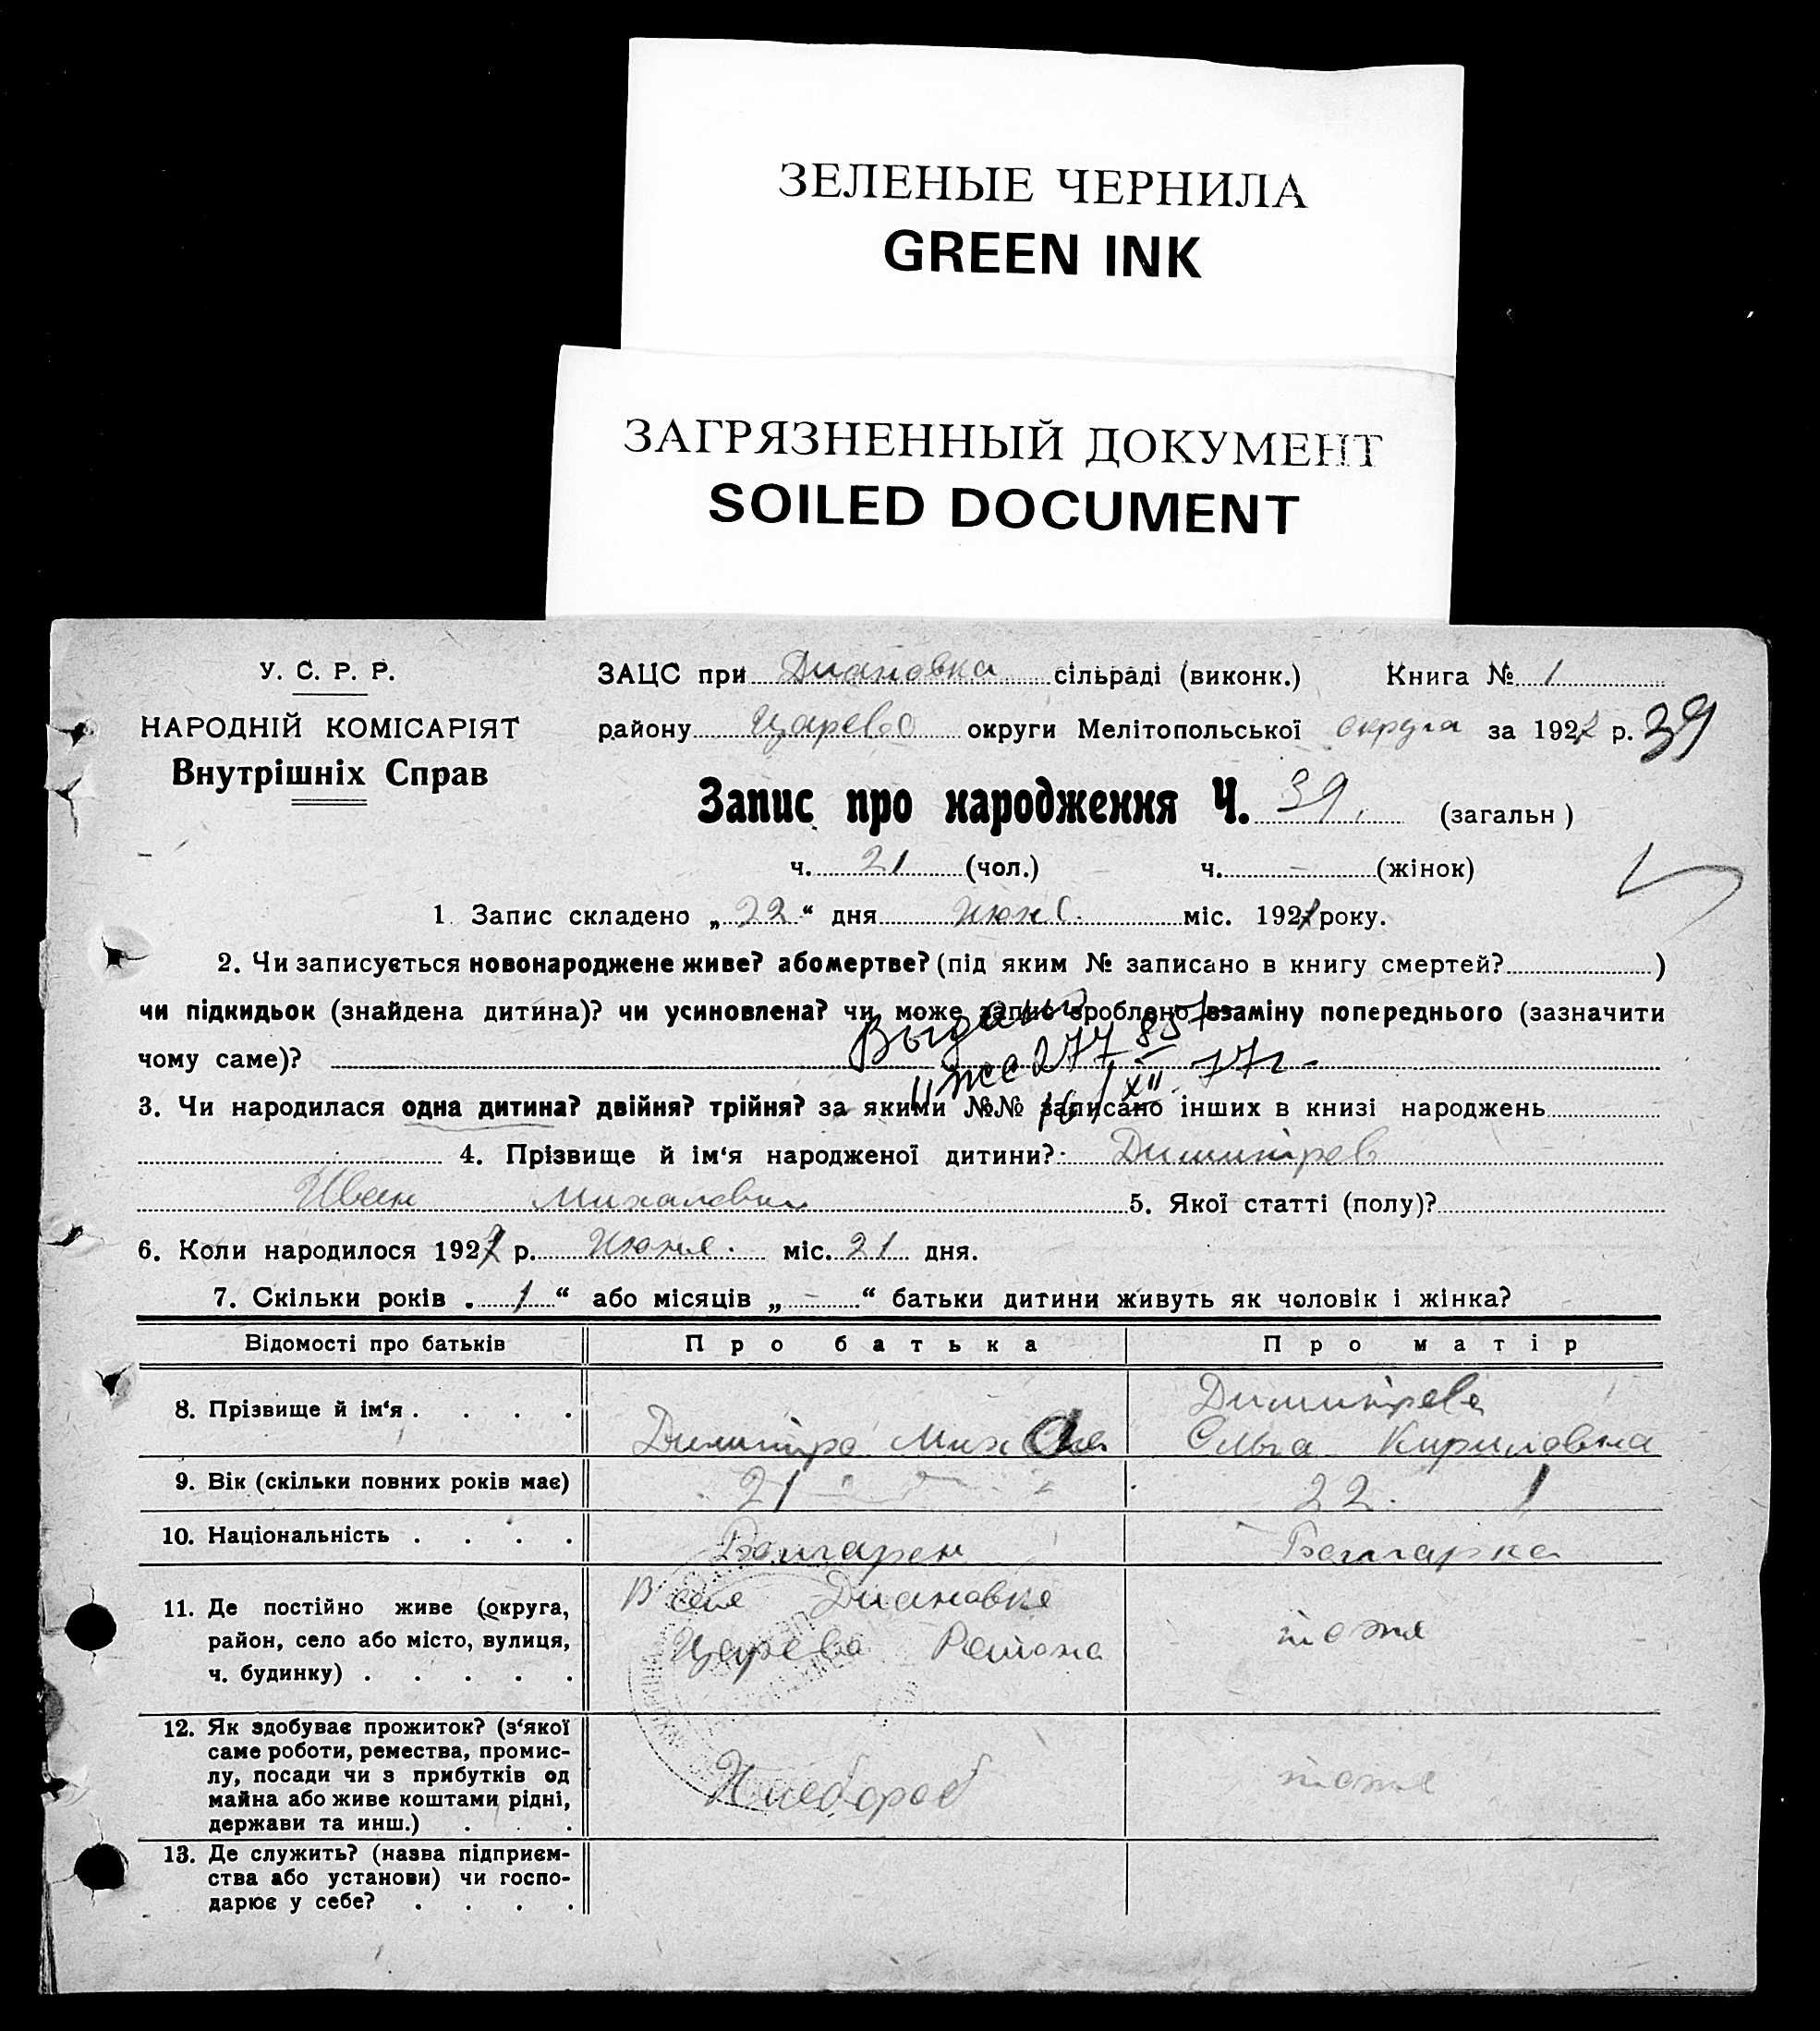 ЗЕЛЕНЫЕ ЧЕРНИЛА
GREEN INK
ЗАГРЯЗНЕННЫЙ ДОКУМЕНТ
SOILED DOCUMENT
У. С. Р. Р.
НАРОДНІЙ КОМІСАРІЯТ
Внутрішніх Справ
ЗАЦС при Диановка сільраді (виконк.) Книга № 1
району Царево округи Мелітопольської округа за 1927 р. 39
Запис про народження Ч. 39. (загальн)
ч. 21 (чол.) ч. - (жінок)
1. Запис складено „22“ дня Июня міс. 1927 року.
2. Чи записується новонароджене живе? або мертве? (під яким № записано в книгу смертей? )
чи підкидьок (знайдена дитина)? чи усиновлена? чи може запис зроблено взаміну попереднього (зазначити
чому саме)?
Выдано
277
XII 77г.
3. Чи народилася одна дитина? двійня? трійня? за якими №№ записано інших в книзі народжень
4. Прізвище й ім‘я народженої дитини? Димитров
Иван Михалович 5. Якої статті (полу)?
6. Коли народилося 1927 р. Июня міс. 21 дня.
7. Скільки років „1“ або місяців „-“ батьки дитини живуть як чоловік і жінка?
Відомості про батьків Про батька Про матір
8. Прізвище й ім‘я . . . . Димитро Миха Димитрова
Ольга Кириловна
9. Вік (скільки повних років має) 21 22.
10. Національність . . . . Болгарен Болгарка
11. Де постійно живе (округа, район, село або місто, вулиця, ч. будинку) . . . . . В селе Диановке
Царево Района тоже
12. Як здобуває прожиток? (з‘якої саме роботи, ремества, промис-
лу, посади чи з прибутків од
майна або живе коштами рідні,
держави та инш.) . . . Хлебороб тоже
13. Де служить? (назва підприєм-
ства або установи) чи госпо-
дарює у себе? . . . .